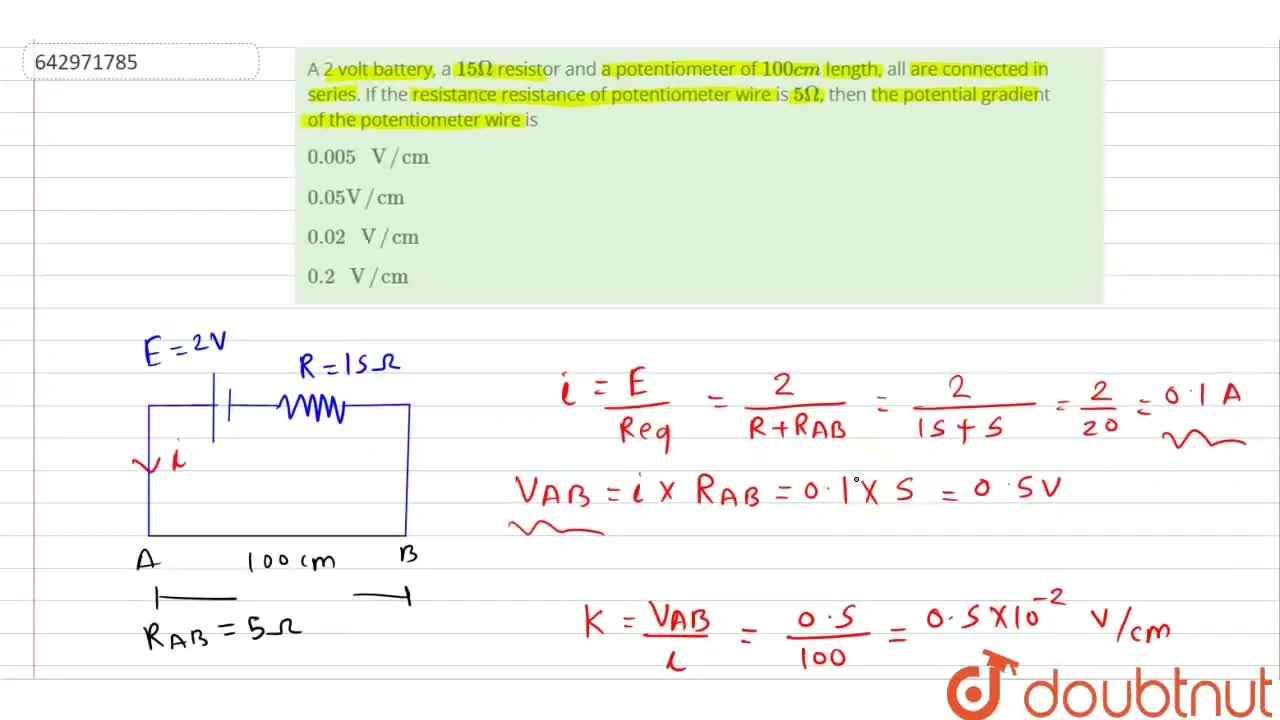 642971785
A 2 volt battery, a 15Ω resistor and a potentiometer of 100cm length, all are connected in
series. If the resistance resistance of potentiometer wire is 5Ω, then the potential gradient
of the potentiometer wire is
0.005 V/cm
0.05V/cm
0.02 V/cm
0.2 V/cm
E = 2V
R = 15Ω
i
A 100 cm B
R_AB = 5Ω
i = E/Req = 2/(R+R_AB) = 2/(15+5) = 2/20 = 0.1 A
V_AB = i × R_AB = 0.1 × 5 = 0.5V
K = V_AB/l = 0.5/100 = 0.5×10^-2 V/cm
doubtnut